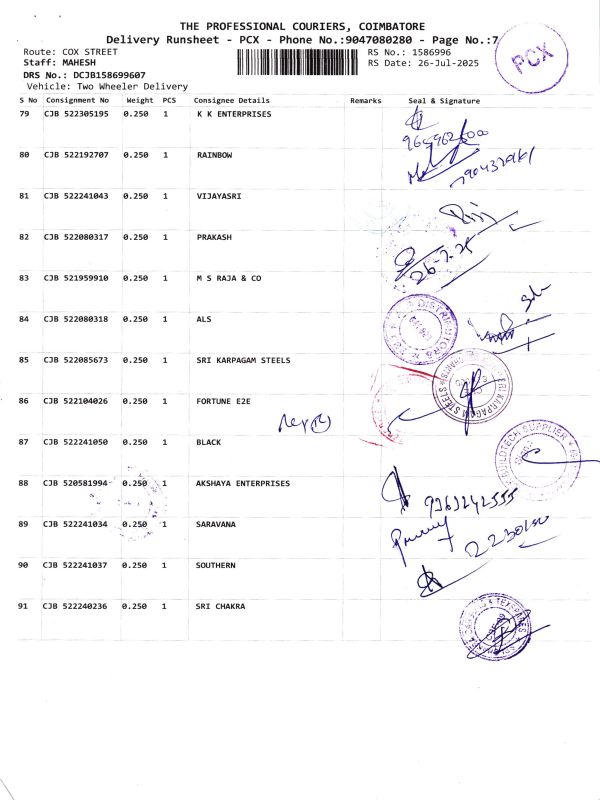 THE PROFESSIONAL COURIERS, COIMBATORE
Delivery Runsheet - PCX - Phone No.:9047080280 - Page No.:7
Route: COX STREET
RS No.: 1586996
Staff: MAHESH
RS Date: 26-Jul-2025
DRS No.: DCJB158699607
Vehicle: Two Wheeler Delivery
PCX
S No Consignment No Weight PCS Consignee Details Remarks Seal & Signature
79 CJB 522305195 0.250 1 K K ENTERPRISES
80 CJB 522192707 0.250 1 RAINBOW
81 CJB 522241043 0.250 1 VIJAYASRI
82 CJB 522080317 0.250 1 PRAKASH
26-7-25
83 CJB 521959910 0.250 1 M S RAJA & CO
84 CJB 522080318 0.250 1 ALS
DISTRIBUTORS
85 CJB 522085673 0.250 1 SRI KARPAGAM STEELS
KARPAGAM STEELS
86 CJB 522104026 0.250 1 FORTUNE E2E
87 CJB 522241050 0.250 1 BLACK
BUILDTECH SUPPLIER
88 CJB 520581994 0.250 1 AKSHAYA ENTERPRISES
89 CJB 522241034 0.250 1 SARAVANA
90 CJB 522241037 0.250 1 SOUTHERN
91 CJB 522240236 0.250 1 SRI CHAKRA